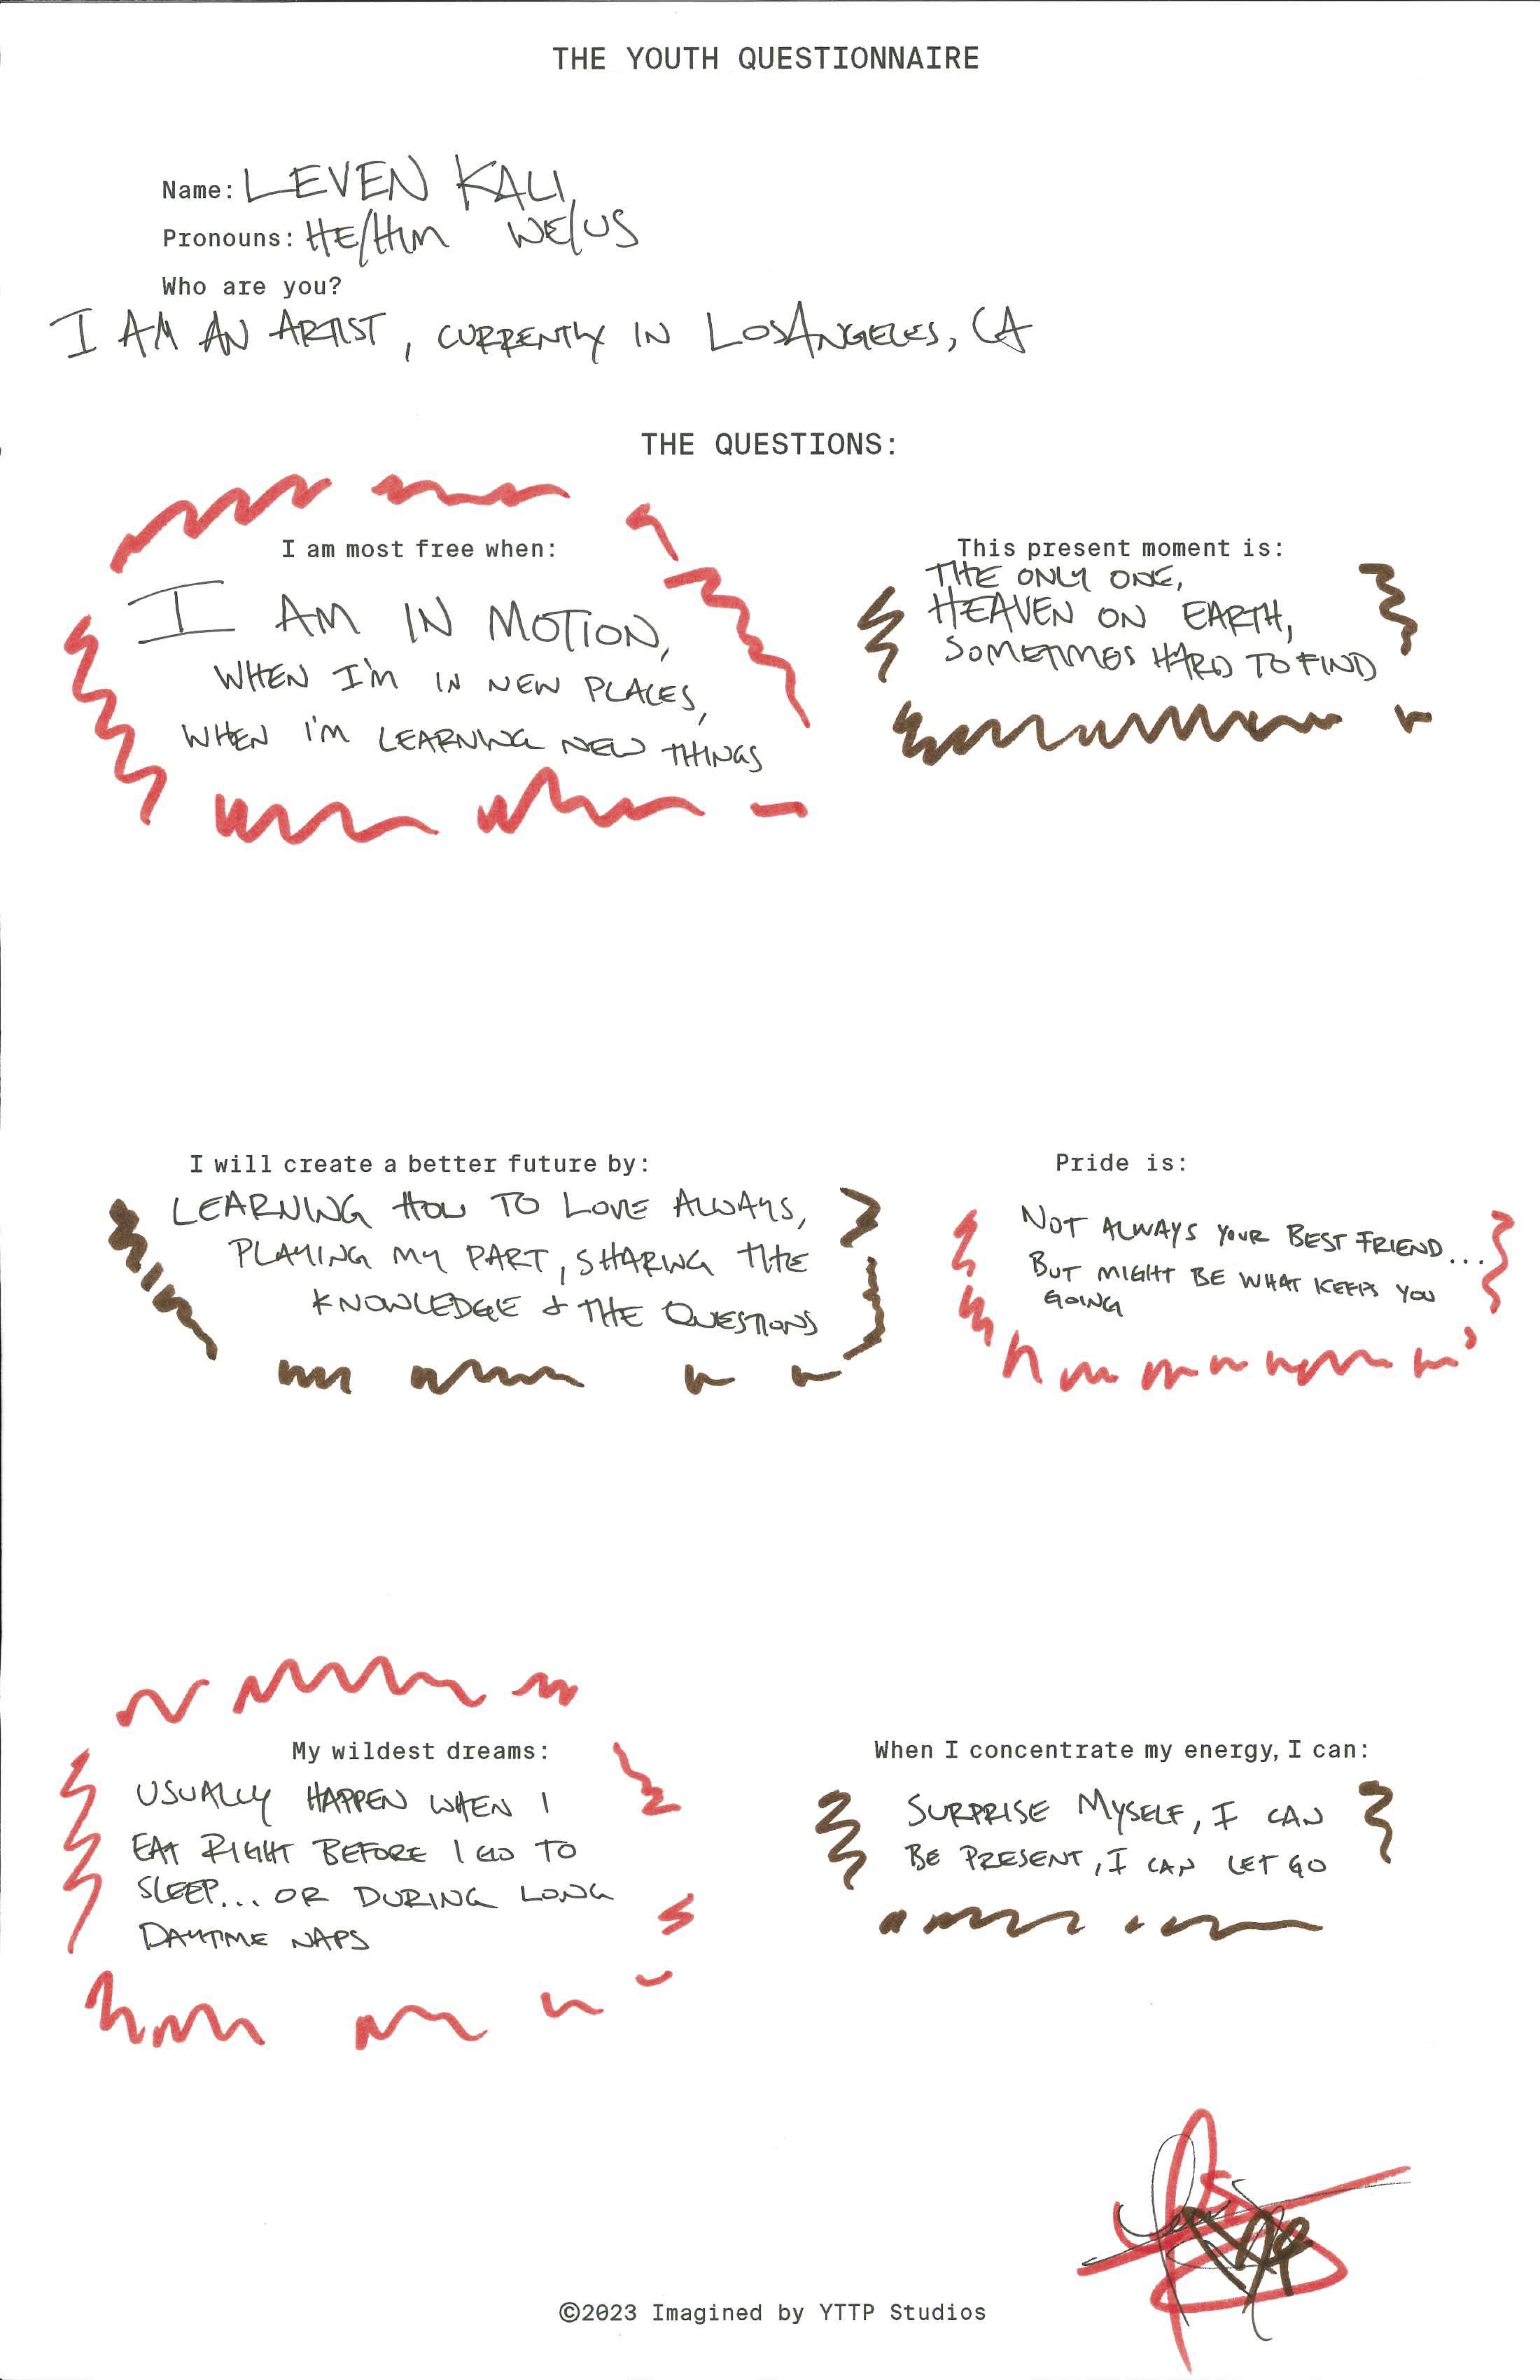 THE YOUTH QUESTIONNAIRE
Name: LEVEN KALI
Pronouns: HE/HIM WE/US
Who are you?
I AM AN ARTIST, CURRENTLY IN LOS ANGELES, CA
THE QUESTIONS:
I am most free when:
I AM IN MOTION,
WHEN I'M IN NEW PLACES,
WHEN I'M LEARNING NEW THINGS
This present moment is:
THE ONLY ONE,
HEAVEN ON EARTH,
SOMETIMES HARD TO FIND
I will create a better future by:
LEARNING HOW TO LOVE ALWAYS,
PLAYING MY PART, SHARING THE
KNOWLEDGE & THE QUESTIONS
Pride is:
NOT ALWAYS YOUR BEST FRIEND...
BUT MIGHT BE WHAT KEEPS YOU
GOING
My wildest dreams:
USUALLY HAPPEN WHEN I
EAT RIGHT BEFORE I GO TO
SLEEP... OR DURING LONG
DAYTIME NAPS
When I concentrate my energy, I can:
SURPRISE MYSELF, I CAN
BE PRESENT, I CAN LET GO
©2023 Imagined by YTTP Studios